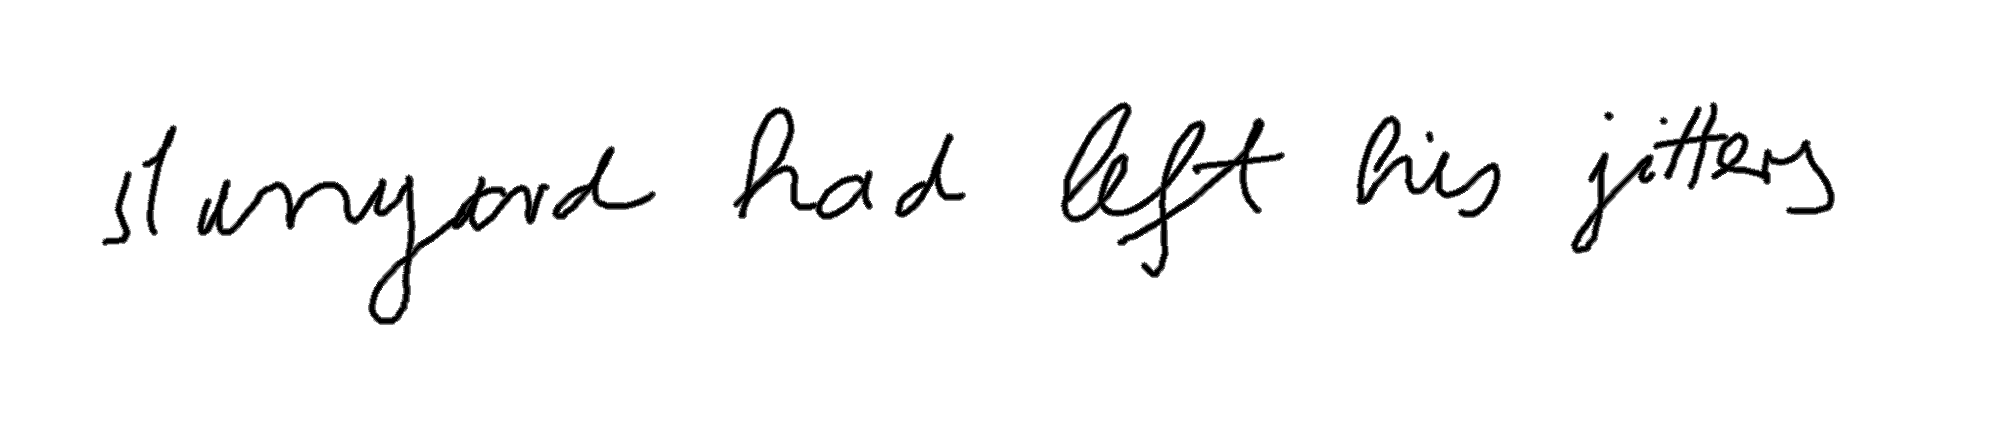 stanyard had left his jitters